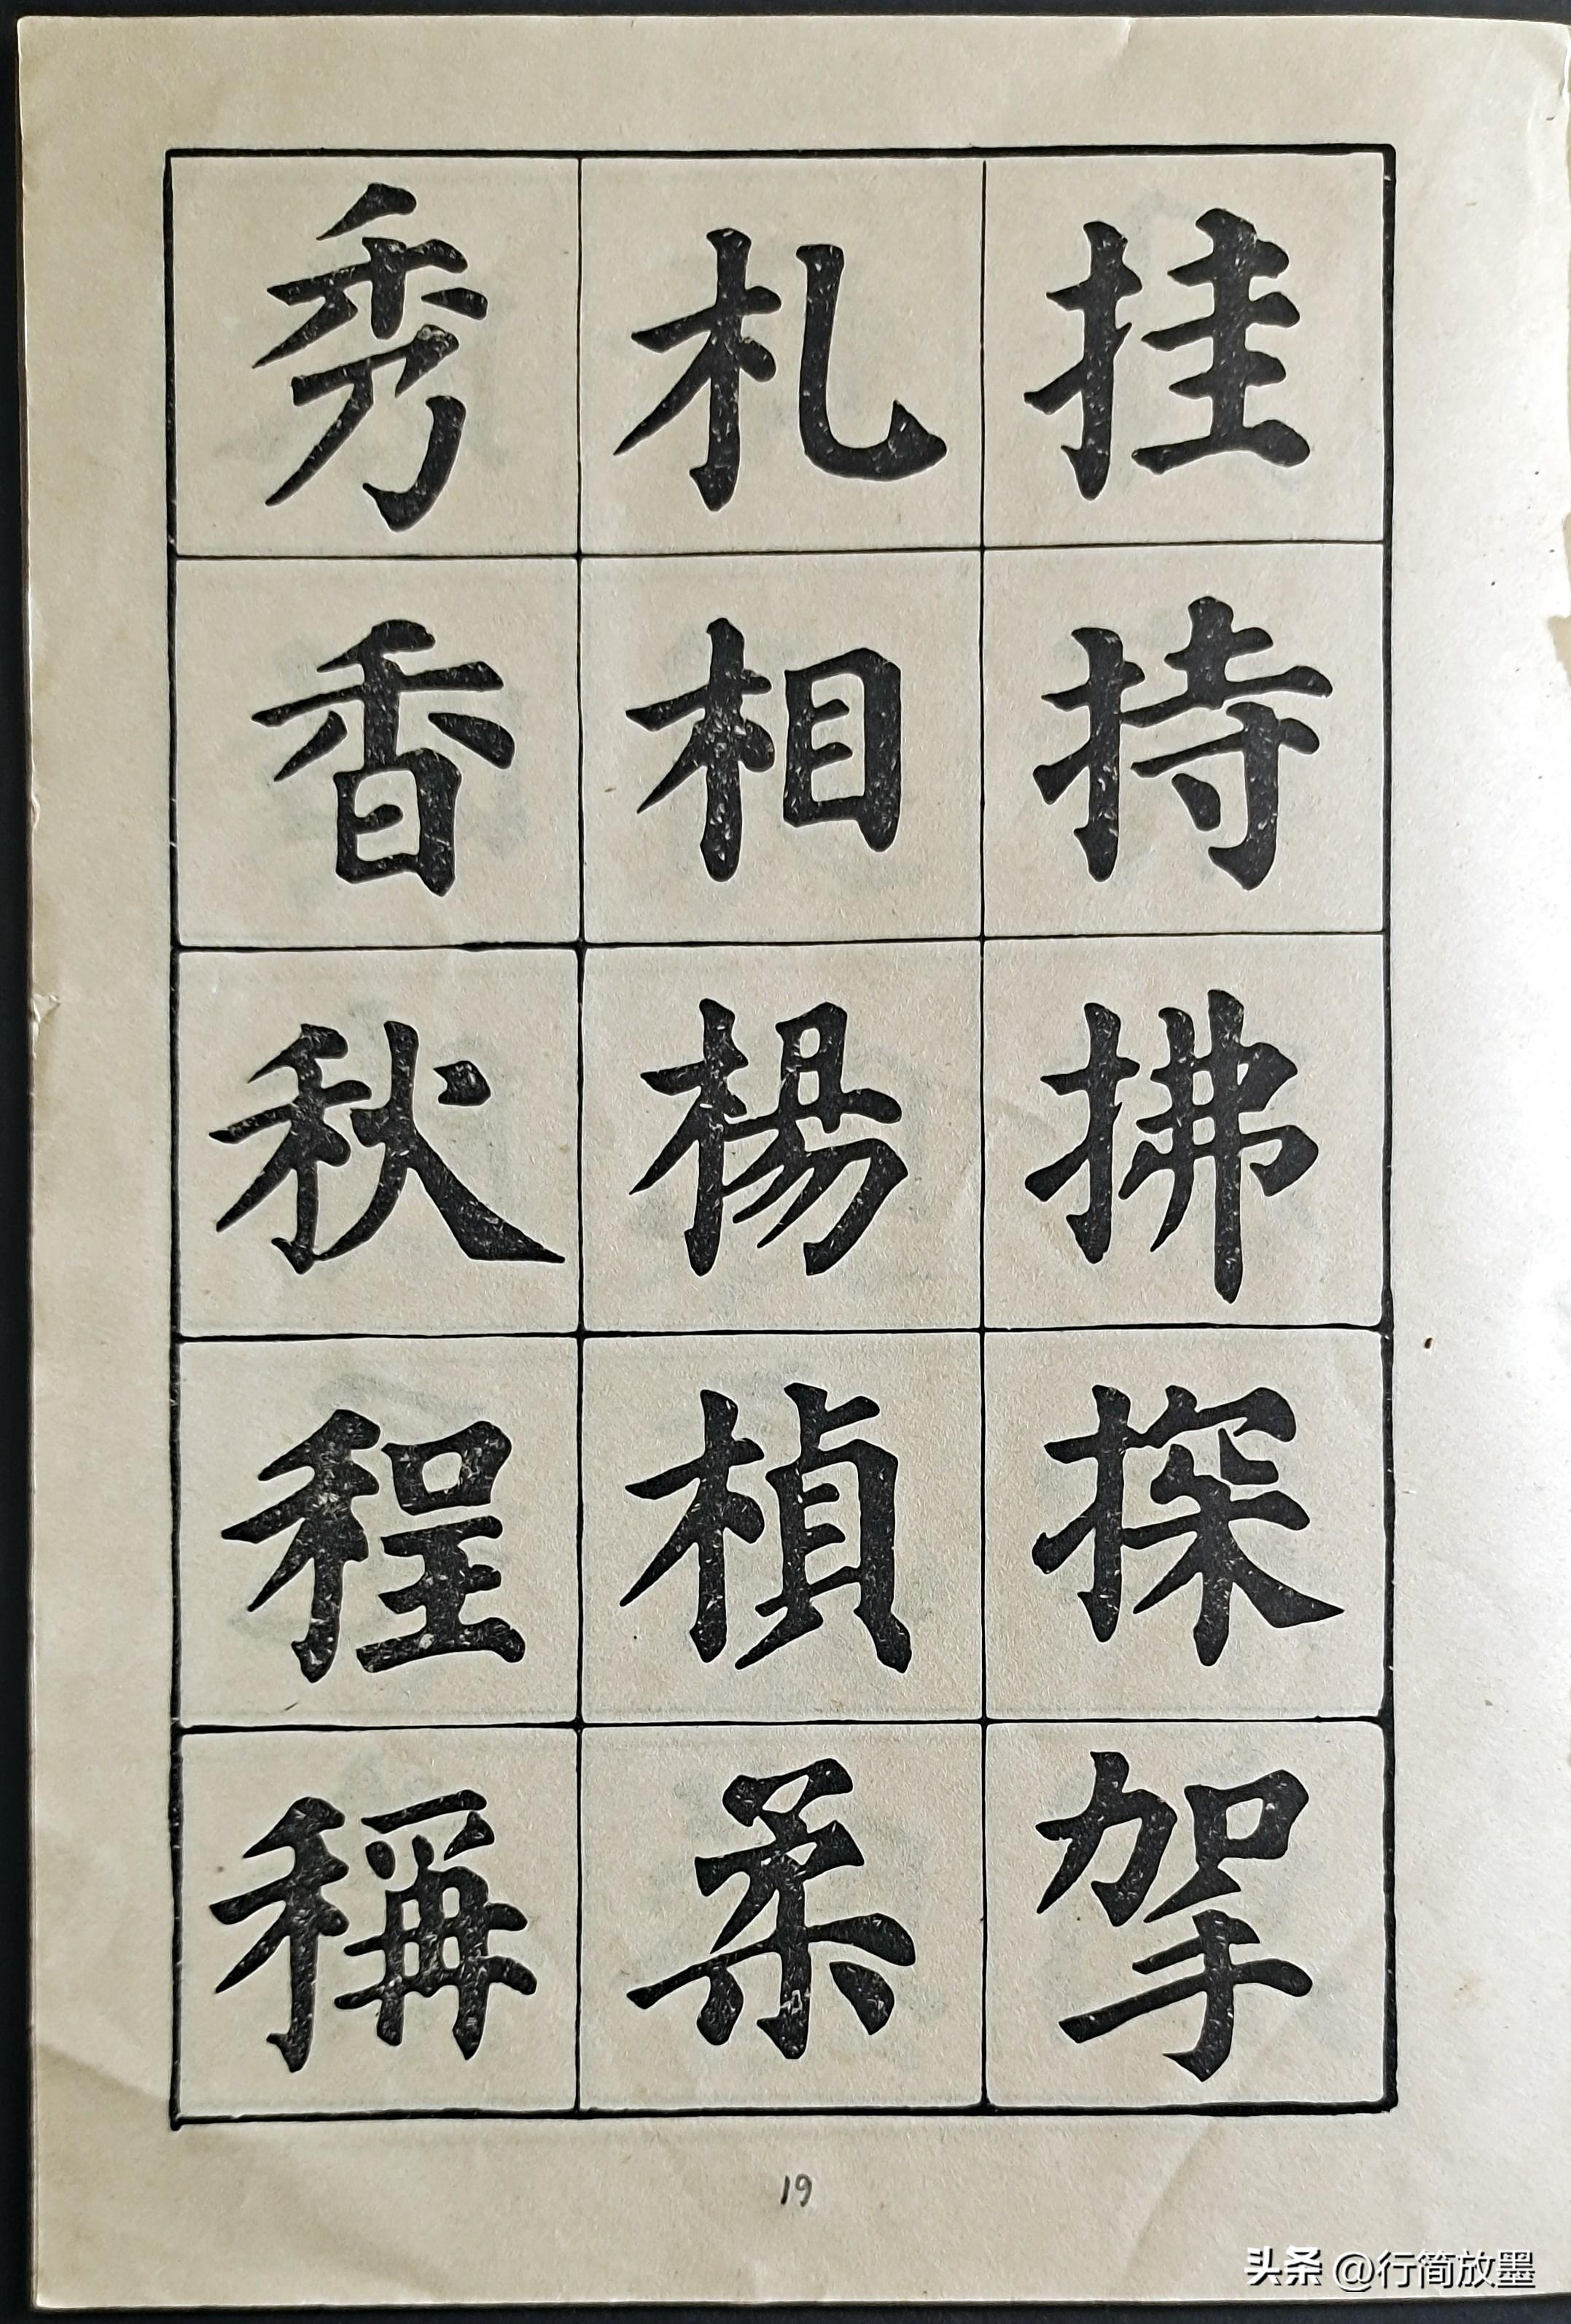 挂持拂探挐
札相楊楨柔
秀香秋程稱
19
头条 @行简放墨